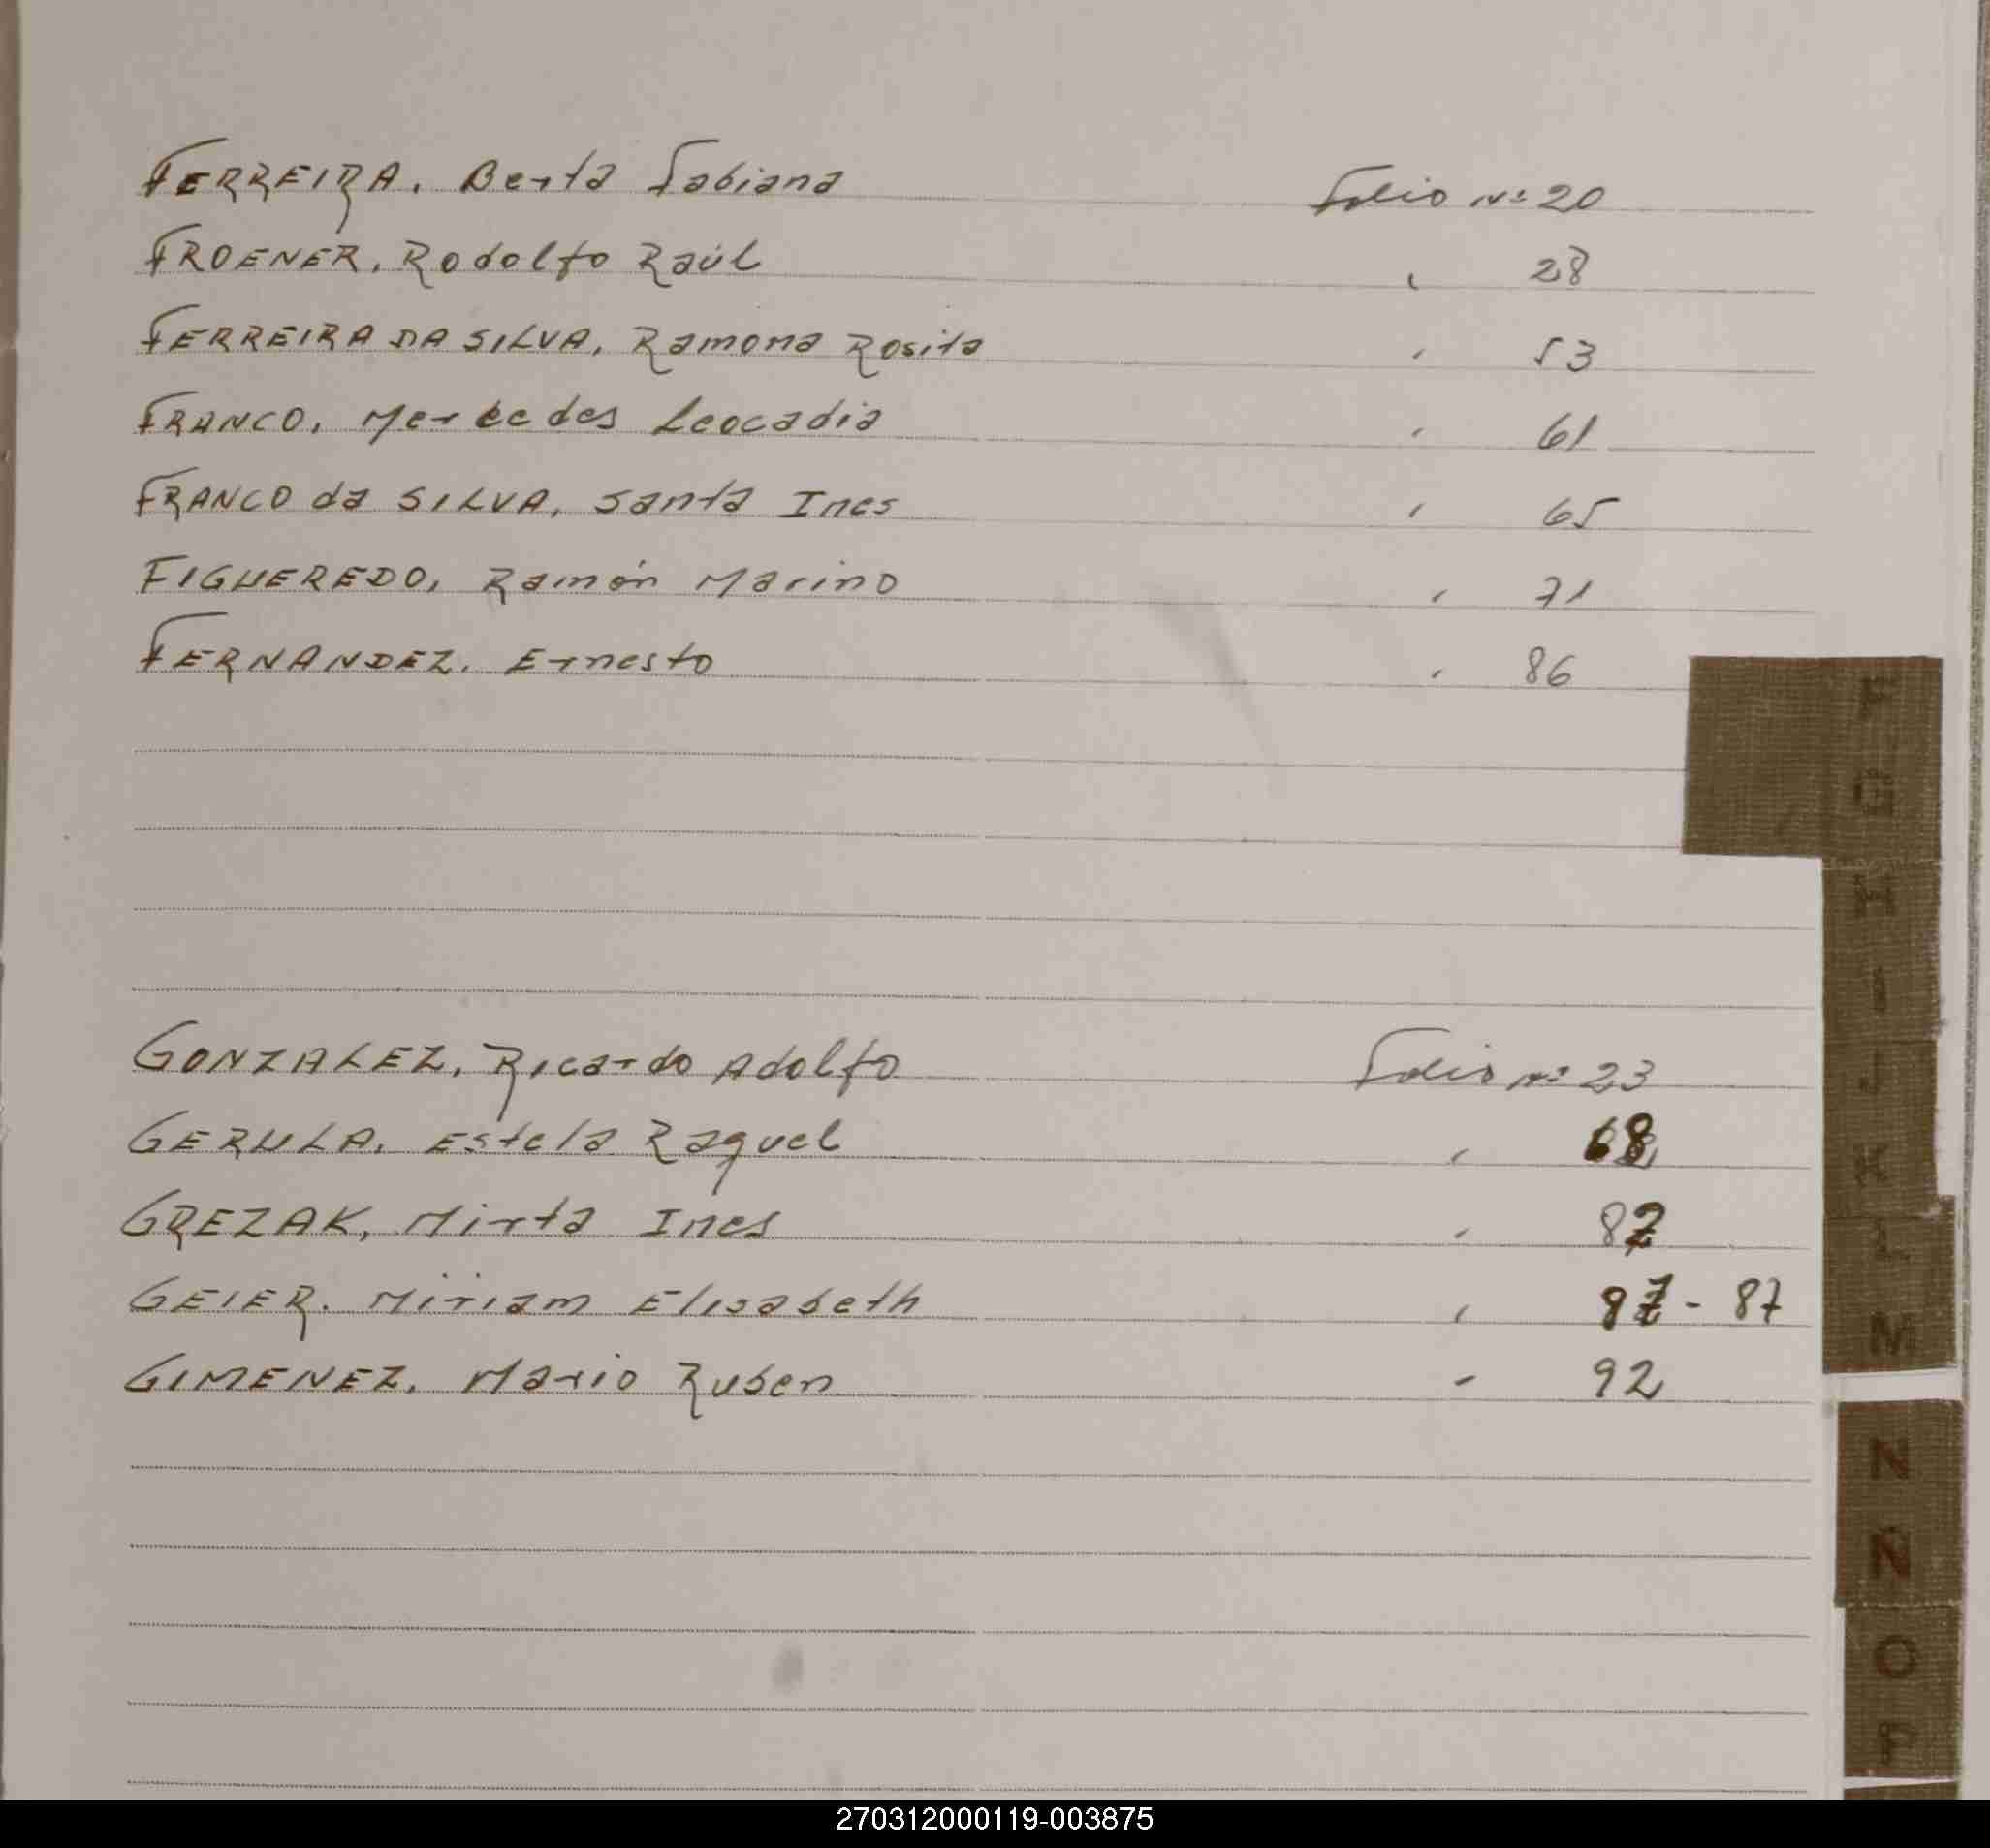 FERREIRA, Berta Fabiana Folio Nº 20
FROENER, Rodolfo Raúl " 28
FERREIRA DA SILVA, Ramona Rosita " 53
FRANCO, Mercedes Leocadia " 61
FRANCO da SILVA, Santa Ines " 65
FIGUEREDO, Ramón Marino " 71
FERNANDEZ, Ernesto " 86
F
G
H
I
J
K
L
M
N
N
O
P
GONZALEZ, Ricardo Adolfo Folio nº 23
GERULA, Estela Raquel " 68
GREZAK, Mirta Ines " 82
GEIER. Miriam Elisabeth " 87 - 87
GIMENEZ, Mario Ruben - 92
270312000119-003875